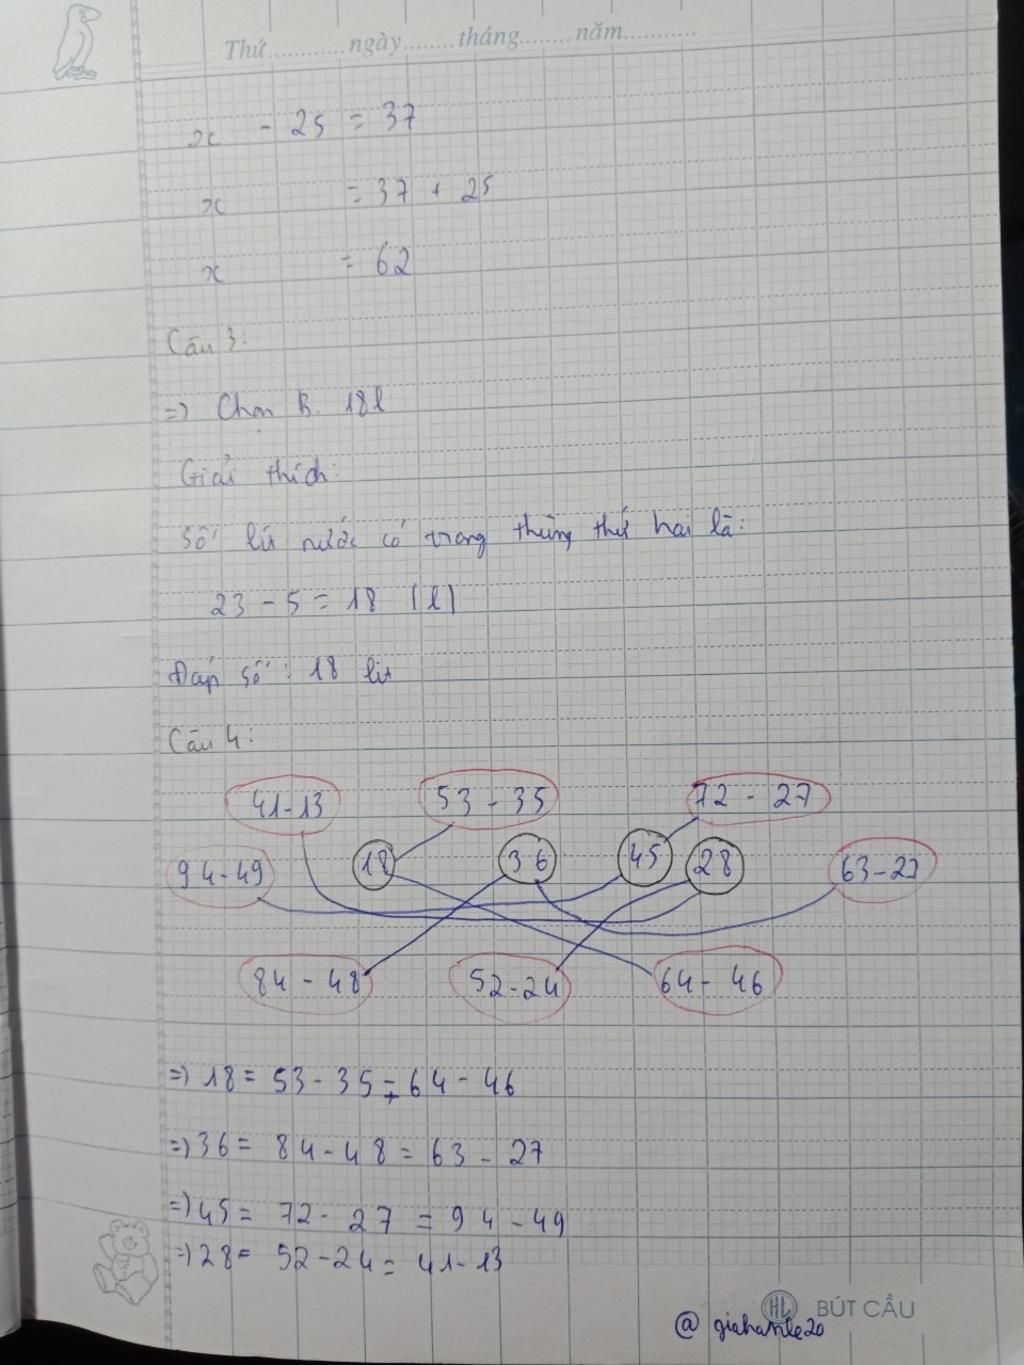 Thứ...........ngày.......tháng.......năm...........
x - 25 = 37
x = 37 + 25
x = 62
Câu 3:
=> Chọn B. 18l
Giải thích:
Số lít nước có trong thùng thứ hai là:
23 - 5 = 18 (l)
Đáp số: 18 lít
Câu 4:
41-13 53 - 35 72 - 27
94-49 18 36 45 28 63-27
84 - 48 52-24 64 - 46
=> 18 = 53 - 35 = 64 - 46
=> 36 = 84 - 48 = 63 - 27
=> 45 = 72 - 27 = 94 - 49
=> 28 = 52 - 24 = 41 - 13
HL BÚT CẦU
@ giahanle20